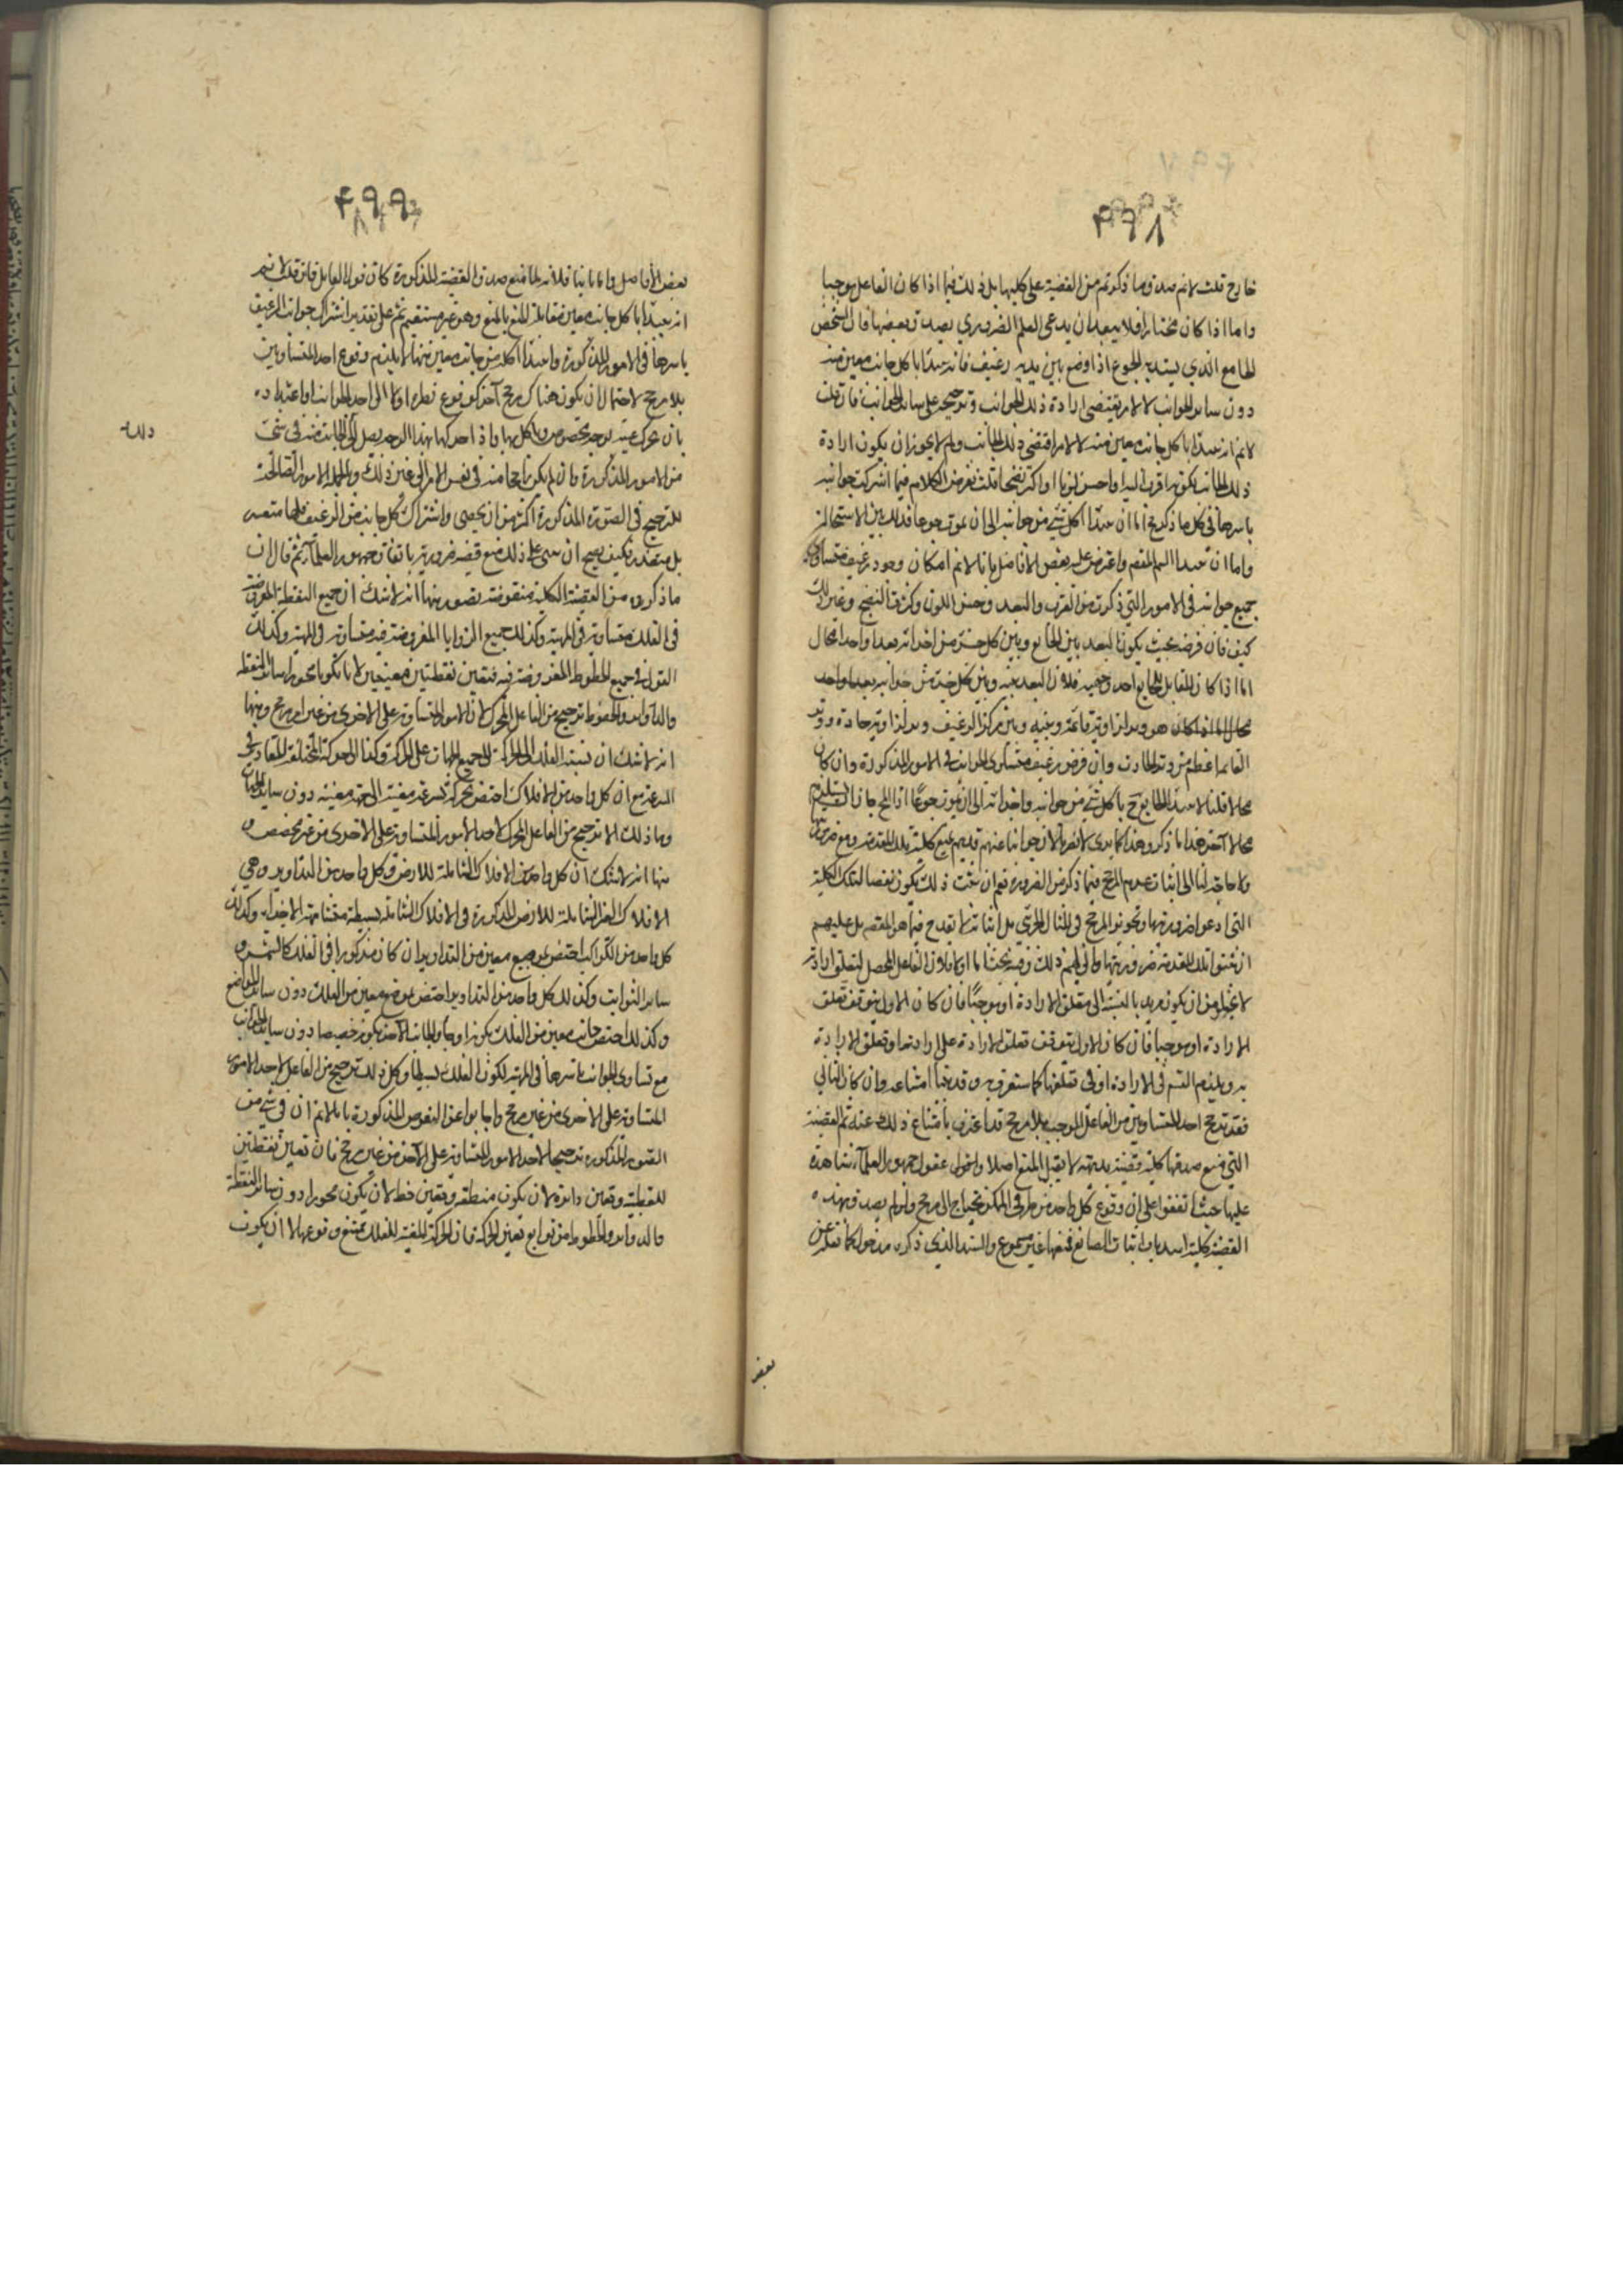 ۴۹۸
خارج قلت لانم صدق ما ذكرتم من القضية على كليها بل ذلك فيما اذا كان الفاعل موجبا
واما اذا كان مختارا فلا يبعد ان يدعى العلم الضروري بصدق بعضها فان الشخص
الجامع الذي يشتد به الجوع اذا وضع بين يديه رغيف فانه يبتدا باكل جانب معين منه
دون ساير الجوانب لا لامر يقتضى ارادة ذلك الجوانب وترجيحه على ساير الجوانب فان قلت
لانم انه يبتدا باكل جانب معين منه لا لامر اقتضى ذلك الجانب ولم لا يجوز ان يكون ارادة
ذلك الجانب لكونه اقرب اليه او احسن لونا او اكثر نضجا قلت نفرض الكلام فيما اشتركت جوانبه
باسرها في كل ما ذكرتم فاما ان يبتدا اكل شيء من جوانبه الى ان يموت جوعا فذلك بين الاستحالة
واما ان يبتدا التم المقصم واعترض عليه بعض الافاضل بانا لانم امكان وجود رغيف متساوى
جميع جوانبه في الامور التي ذكرت من القرب والبعد وحسن اللون وكثرة النضج وغير ذلك
كيف فان فرضه بحيث يكون البعد بين الجايع وبين كل جزء من اجزائه بعدا واحدا محال
اما اذا كان المقابل للجايع احد وجهيه فلان البعد بينه وبين كل جزء من جوانبه بعدا واحد
محال
القائمة اعظم من وتر الحادة وان فرض رغيف متساوى الجوانب في الامور المذكورة وان كان
محالا قلنا لا يبتدا الجايع باكل شيء من جوانبه واجزائه الى ان يموت جوعا اذ المحال جاز ان يستلزم
محالا آخر هذا ما ذكره وهذا كما يرى
ولا حاجة لنا الى اثبات عدم المرجح فيما ذكر من الضرورة نعم ان ثبت ذلك يكون نقضا لتلك الكلية
التي ادعوا ضرورتها وتجويز المرجح في المثال الجزئي بل اثباته لا يقدح فيما هو المقصم بل عليهم
ان يثبتوا تلك المقدمة ضرورتها وانى لهم ذلك وفيه بحث اما اولا فلان الفاعل المحصل لتعلق ارادته
لا يخلو من ان يكون مريدا بالنسبة الى متعلق الارادة او موجبا فان كان الاول يتوقف تعلق
الارادة او موجبا فان كان الاول يتوقف تعلق الارادة على ارادة او تعلق الارادة
به ويلزم التسم في الارادة او في تعلقها كما ستعرف به وقد بينا امتناعه وان كان الثاني
فقد ترجح احد المتساويين من الفاعل الموجب بلا مرجح قد اعترف بامتناع ذلك عنه ثم القضية
التي منع صدقها كلية قضية بديهية لا يقبل المنع اصلا والفحول عقول جمهور العلماء شاهدة
عليها حيث اتفقوا على ان وقوع كل واحد من طرفى الممكن يحتاج الى مرجح ولو لم يصدق هذه
القضية كلية انسد باب اثبات الصانع فمنعها غير مسموع والسند الذي ذكره مدخول كما نقله عن
بعض
۴۹۹
بعض الافاضل واما ثانيا فلانه لما منع صدق القضية المذكورة كان قول القايل فان قلت لانم
انه يبتدا باكل جانب معين مقابلة للمنع بالمنع وهو غير مستقيم ثم على تقدير اشتراك جوانب الرغيف
باسرها في الامور المذكورة وابتدا اكله من جانب معين منها لا يلزم وقوع احد المتساويين
بلا مرجح لاحتمال ان يكون هناك مرجح آخر كوقوع نظره اولا الى احد الجوانب او اعتياده
بان يحرك عينه بوجه مخصوص
ذلك
من الامور المذكورة وان لم يكن راجحا منه في نفس الامر الى غير ذلك وبالجملة الامور الصالحة
للترجيح في الصورة المذكورة اكثر من ان يحصى واشتراك كل جانب من الرغيف فيها متعسر
بل متعذر فكيف يصح ان يبنى على ذلك منع قضية ضرورية باتفاق جمهور العلماء ثم قال ان
ما ذكروه من القضية الكلية منقوضة بصور منها انه لا شك ان جميع النقطة المفروضة
في الفلك متساوية في المهية وكذلك جميع الزوايا المفروضة فيه متساوية في المهية وكذلك
القول في جميع الخطوط المفروضة فيه فتعين نقطتين معينتين لان يكونا محورا ساير النقطة
والدواير والخطوط ترجيح من الفاعل المحرك لاحد الامور المتساوية على الاخرى من غير مرجح ومنها
انه لا شك ان نسبة الفلك الى الحركة الى جميع الجهات على المركز وكذا الى الحركة المختلفة المقادير في
السرعة مع ان كل واحد من الافلاك اختص بحركة بسرعة معينة الى جهة معينة دون ساير الجهات
وما ذلك الا ترجيح من الفاعل المحرك لاحد الامور المتساوية على الاخرى من غير مخصص و
منها انه لا شك ان كل واحد من الافلاك الشاملة للارض وكل واحد من التداوير وهي
الافلاك الغير الشاملة للارض المذكورة في الافلاك الشاملة بسيطة متشابهة الاجزاء وكذلك
كل واحد من الكواكب اختص بموضع معين من التداوير ان كان مذكورا في الفلك كالشمس و
ساير الثوابت وكذلك كل واحد من التداوير اختص بموضع معين من الفلك دون ساير المواضع
وكذلك اختص جانب معين من الفلك بكونه اوجا والجانب الآخر بكونه حضيضا دون ساير الجوانب
مع تساوى الجوانب باسرها في المهية لكون الفلك بسيطا وكل ذلك ترجيح من الفاعل لاحد الامور
المتساوية على الاخرى من غير مرجح واجابوا عن النقوض المذكورة بانا لانم ان في شيء من
الصور المذكورة ترجيحا لاحد الامور المتساوية على الآخر من غير مرجح فان تعين نقطتين
للقطبية وتعين دائرة لان يكون منطقة وتعين خط لان يكون محورا دون ساير النقطة
والدواير والخطوط من توابع تعين الحركة فان الحركة المعينة للفلك يمتنع وقوعها الا ان يكون